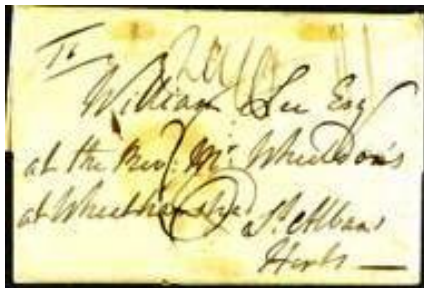 To
William Lee Esq
at the Rev. Mr. Wheeldon's
at Wheathamstead St. Albans
Herts